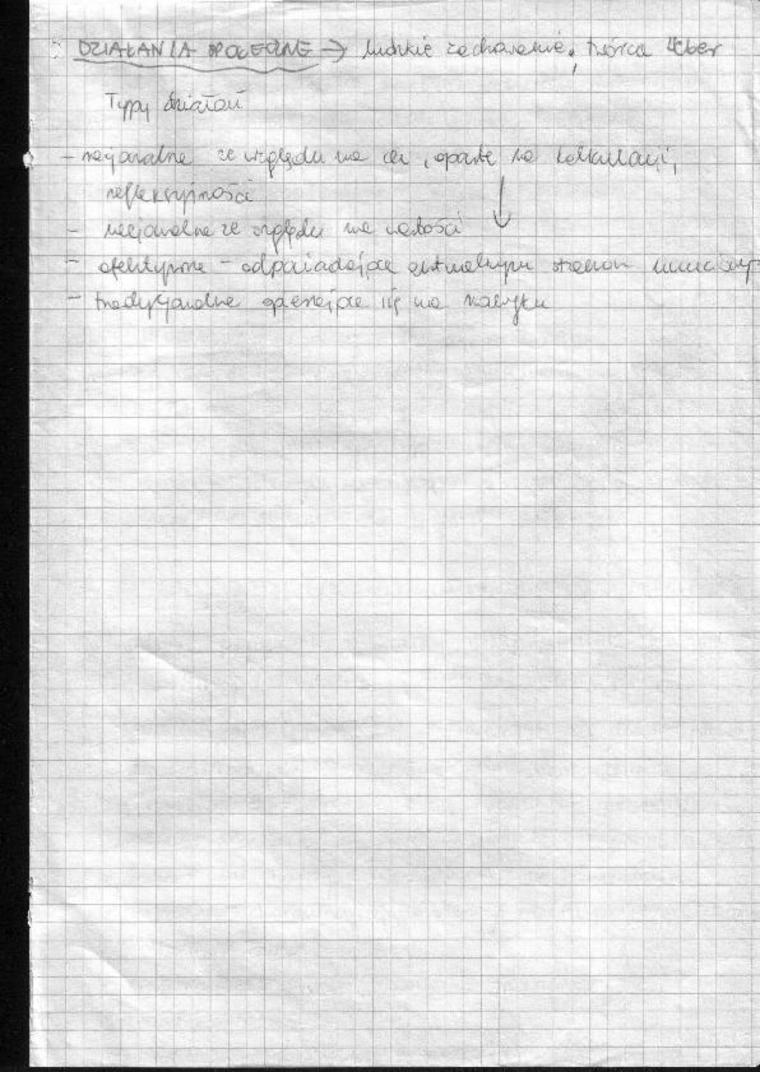 DZIAŁANIA SPOŁECZNE → ludzkie zachowanie, twórca Weber
Typy działań
- racjonalne ze względu na cel, oparte na kalkulacji,
refleksyjności
- racjonalne ze względu na wartości
- afektywne - odpowiadające aktualnym stanom
- tradycjonalne opierające się na nawyku